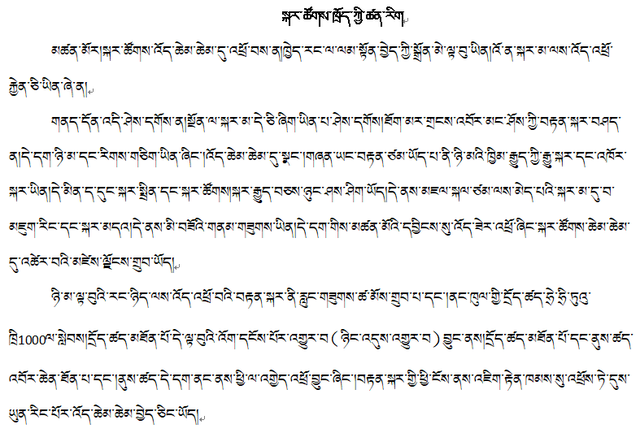 སྐར་ཚོགས་ཁྲོད་ཀྱི་ཚན་རིག
མཚན་མོར།སྐར་ཚོགས་འོད་ཆེམ་ཆེམ་དུ་འཕྲོ་བས་ན།ཁྱེད་རང་ལ་ལམ་སྟོན་བྱེད་ཀྱི་སྒྲོན་མེ་ལྟ་བུ་ཡིན།འོ་ན་སྐར་མ་ལས་འོད་འཕྲོ་
རྐྱེན་ཅི་ཡིན་ཞེ་ན།
གནད་དོན་འདི་ཤེས་དགོས་ན།སྔོན་ལ་སྐར་མ་དེ་ཅི་ཞིག་ཡིན་པ་ཤེས་དགོས།ཐོག་མར་གྲངས་འབོར་མང་ཤོས་ཀྱི་བརྟན་སྐར་བཤད་
ན།དེ་དག་ཉི་མ་དང་རིགས་གཅིག་ཡིན་ཞིང་།འོད་ཆེམ་ཆེམ་དུ་སྣང་།གཞན་ཡང་བརྟན་ཙམ་ཡོད་པ་ནི་ཉི་མའི་ཁྱིམ་རྒྱུད་ཀྱི་རྒྱུ་སྐར་དང་འཁོར་
སྐར་ཡིན།དེ་མིན་ད་དུང་སྐར་སྤྲིན་དང་སྐར་ཚོགས།སྐར་རྒྱུད་བཅས་ཉུང་ཤས་ཤིག་ཡོད།དེ་ནས་མཇལ་སྐལ་ཙམ་ལས་མེད་པའི་སྐར་མ་དུ་བ་
མཇུག་རིང་དང་སྐར་མདའ།དེ་ནས་མི་བཟོའི་གནམ་གཟུགས་ཡིན།དེ་དག་གིས་མཚན་མོའི་དབྱིངས་སུ་འོད་ཟེར་འཕྲོ་ཞིང་སྐར་ཚོགས་ཆེམ་ཆེམ་
དུ་འཚེར་བའི་མཛེས་ལྗོངས་གྲུབ་ཡོད།
ཉི་མ་ལྟ་བུའི་རང་ཉིད་ལས་འོད་འཕྲོ་བའི་བརྟན་སྐར་ནི་རླུང་གཟུགས་ཚ་མོས་གྲུབ་པ་དང་།ནང་ཁུལ་གྱི་དྲོད་ཚད་ཧྲེ་ཧྲི་ཏུའུ་
ཁྲི1000ལ་སླེབས།དྲོད་ཚད་མཐོན་པོ་དེ་ལྟ་བུའི་འོག་དངོས་པོར་འགྱུར་བ(ཉིང་འདུས་འགྱུར་བ)བྱུང་ནས།དྲོད་ཚད་མཐོན་པོ་དང་ནུས་ཚད་
འབོར་ཆེན་ཐོན་པ་དང་།ནུས་ཚད་དེ་དག་ནང་ནས་ཕྱི་ལ་འགྱེད་འཕྲོ་བྱུང་ཞིང་།བརྟན་སྐར་གྱི་ཕྱི་ངོས་ནས་འཇིག་རྟེན་ཁམས་སུ་འཕྲོས་ཏེ་དུས་
ཡུན་རིང་པོར་འོད་ཆེམ་ཆེམ་བྱེད་ཅིང་ཡོད།